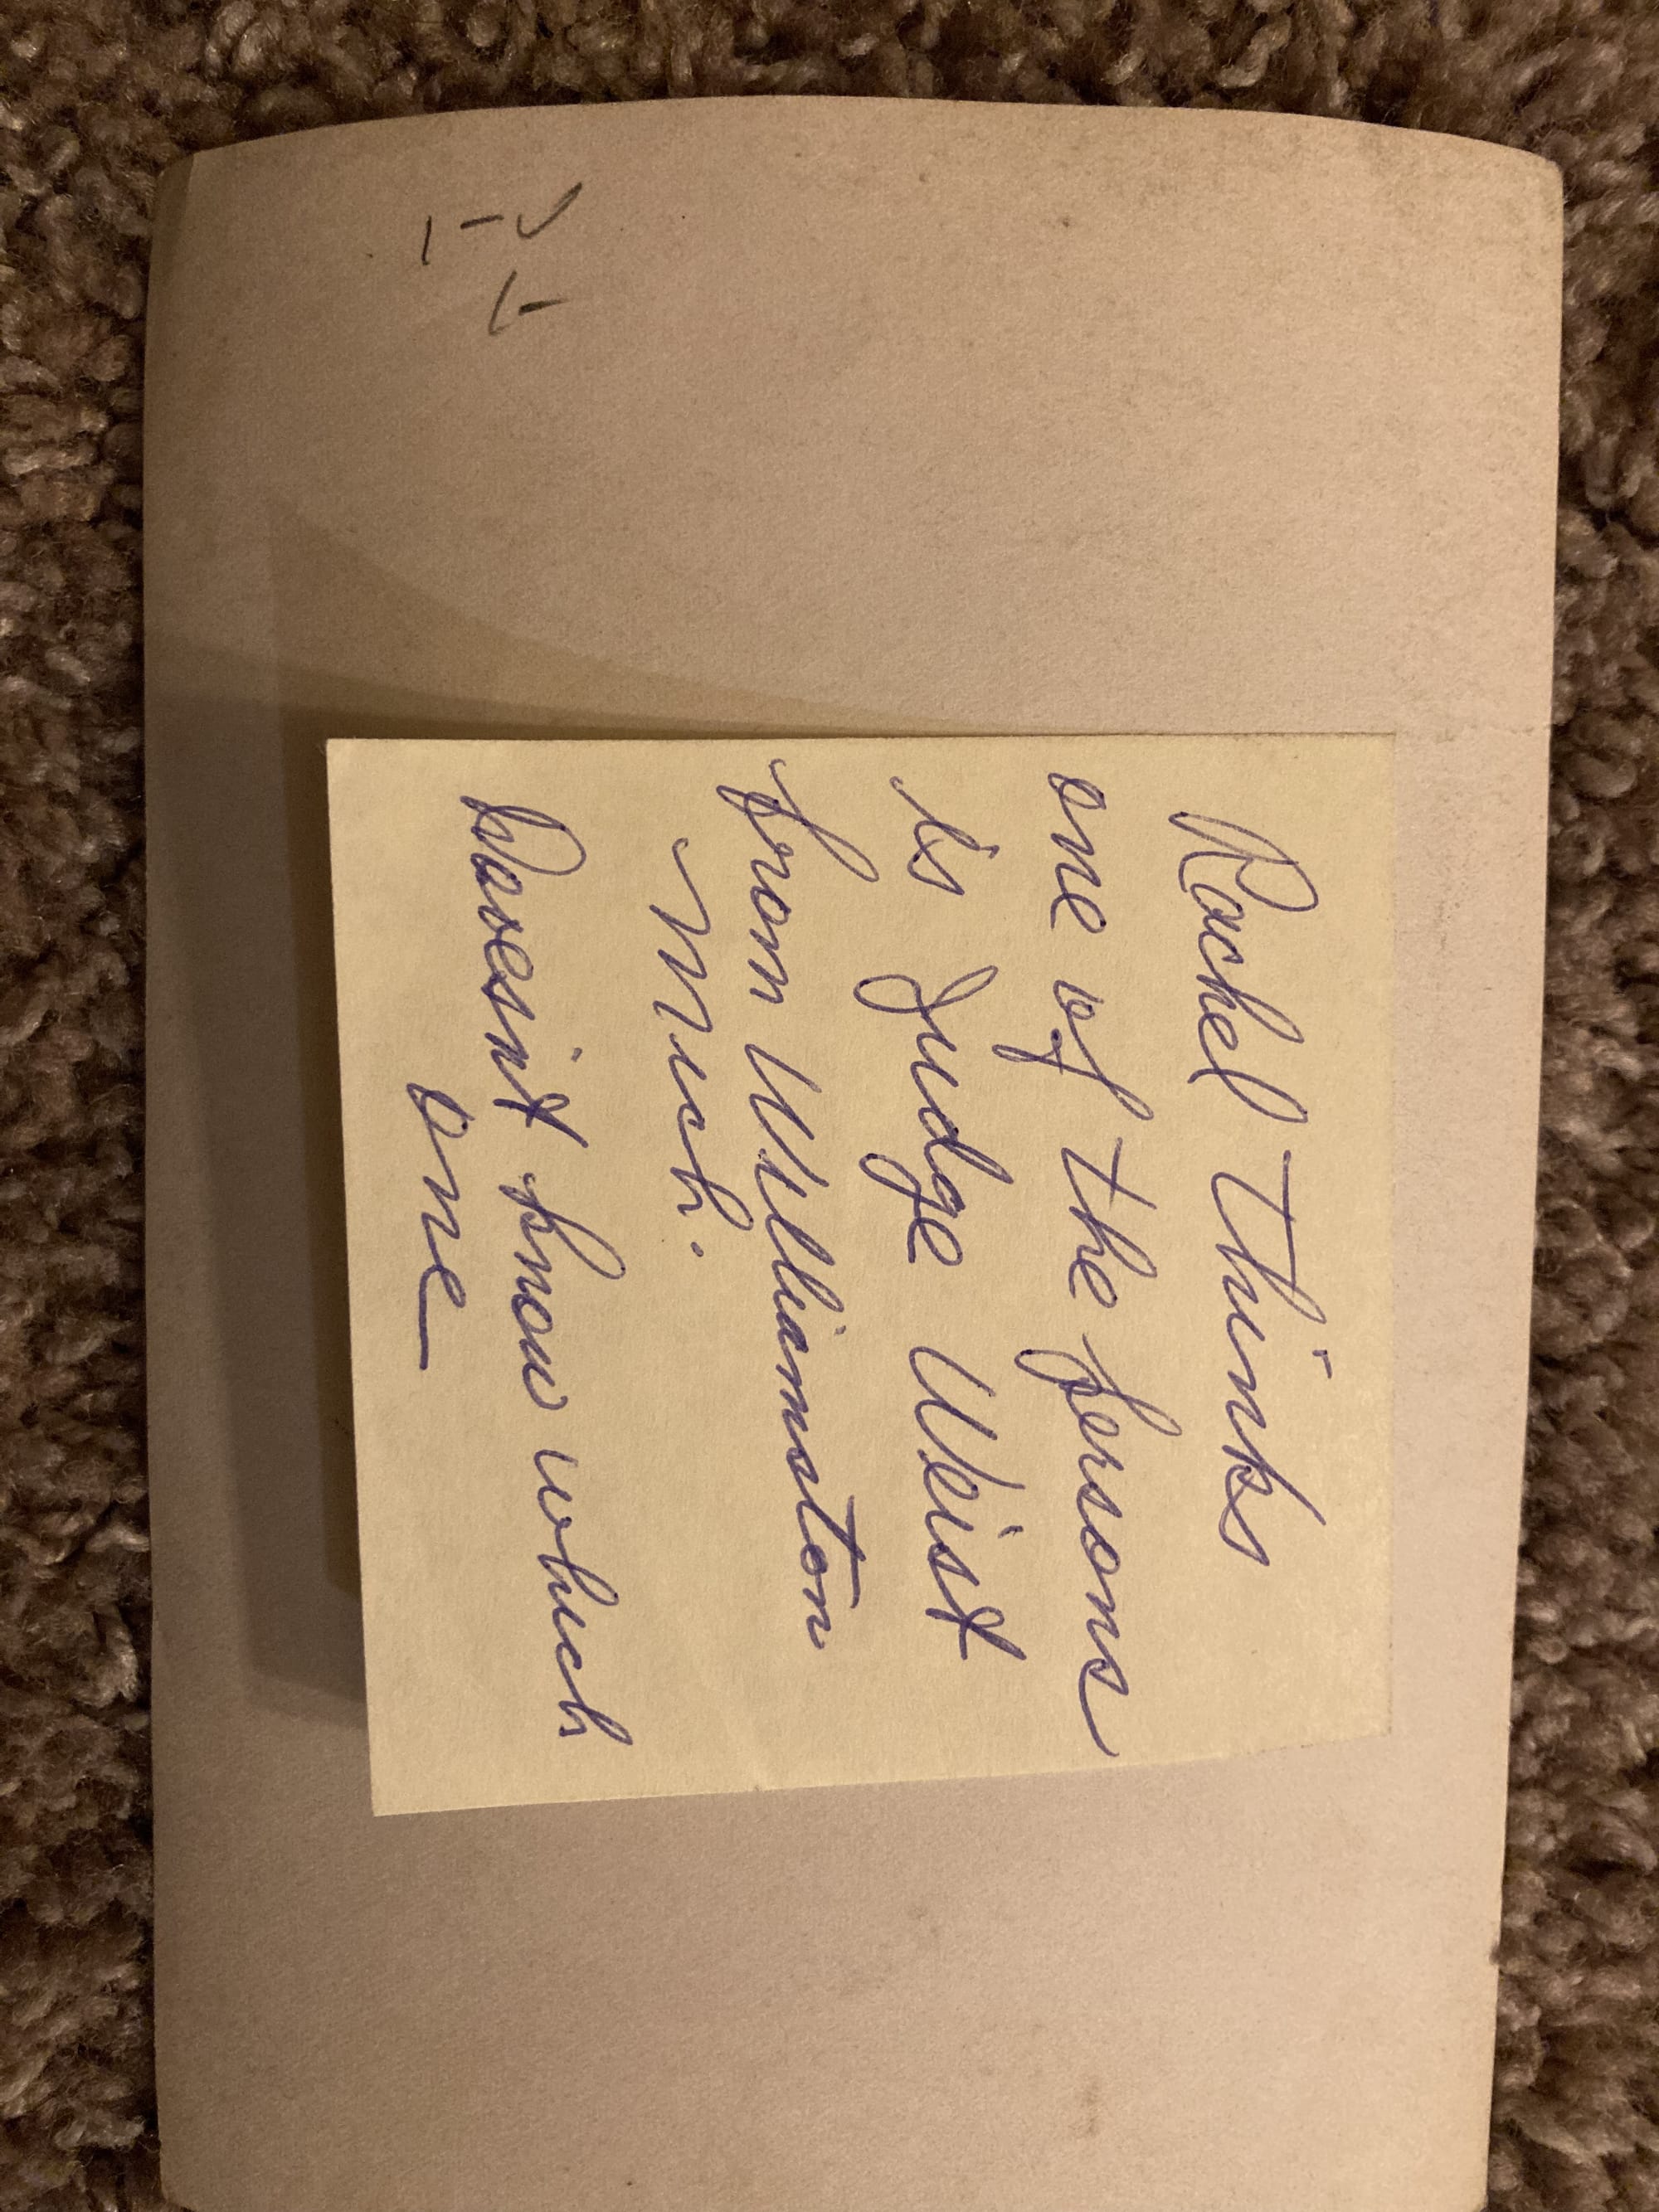 Rachel thinks
one of the persons
is Judge Weist
from Williamston
Mich.
Doesint know which
one